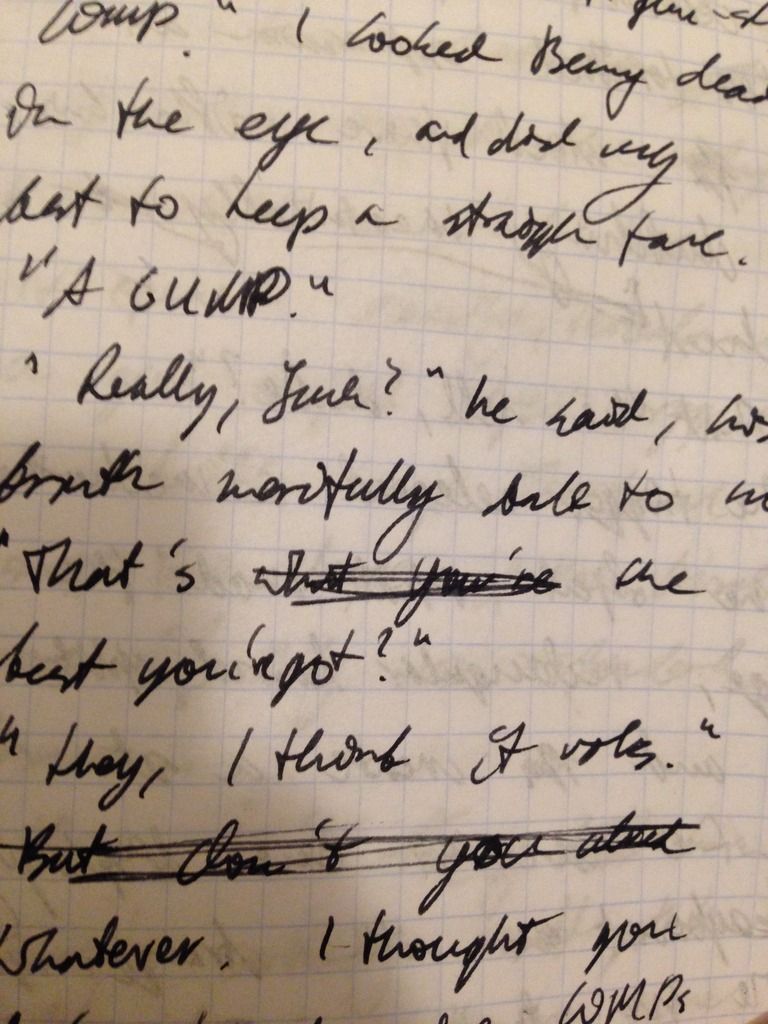 comp." I looked Benny dead
in the eye, and did my
best to keep a straigh face.
"A GUMP."
"Really, Jack?" he said, his
breath mercifully
"That's what you're the
best you'v got?"
"Hey, I think it rolls."
But don't you
Whatever. I thought you